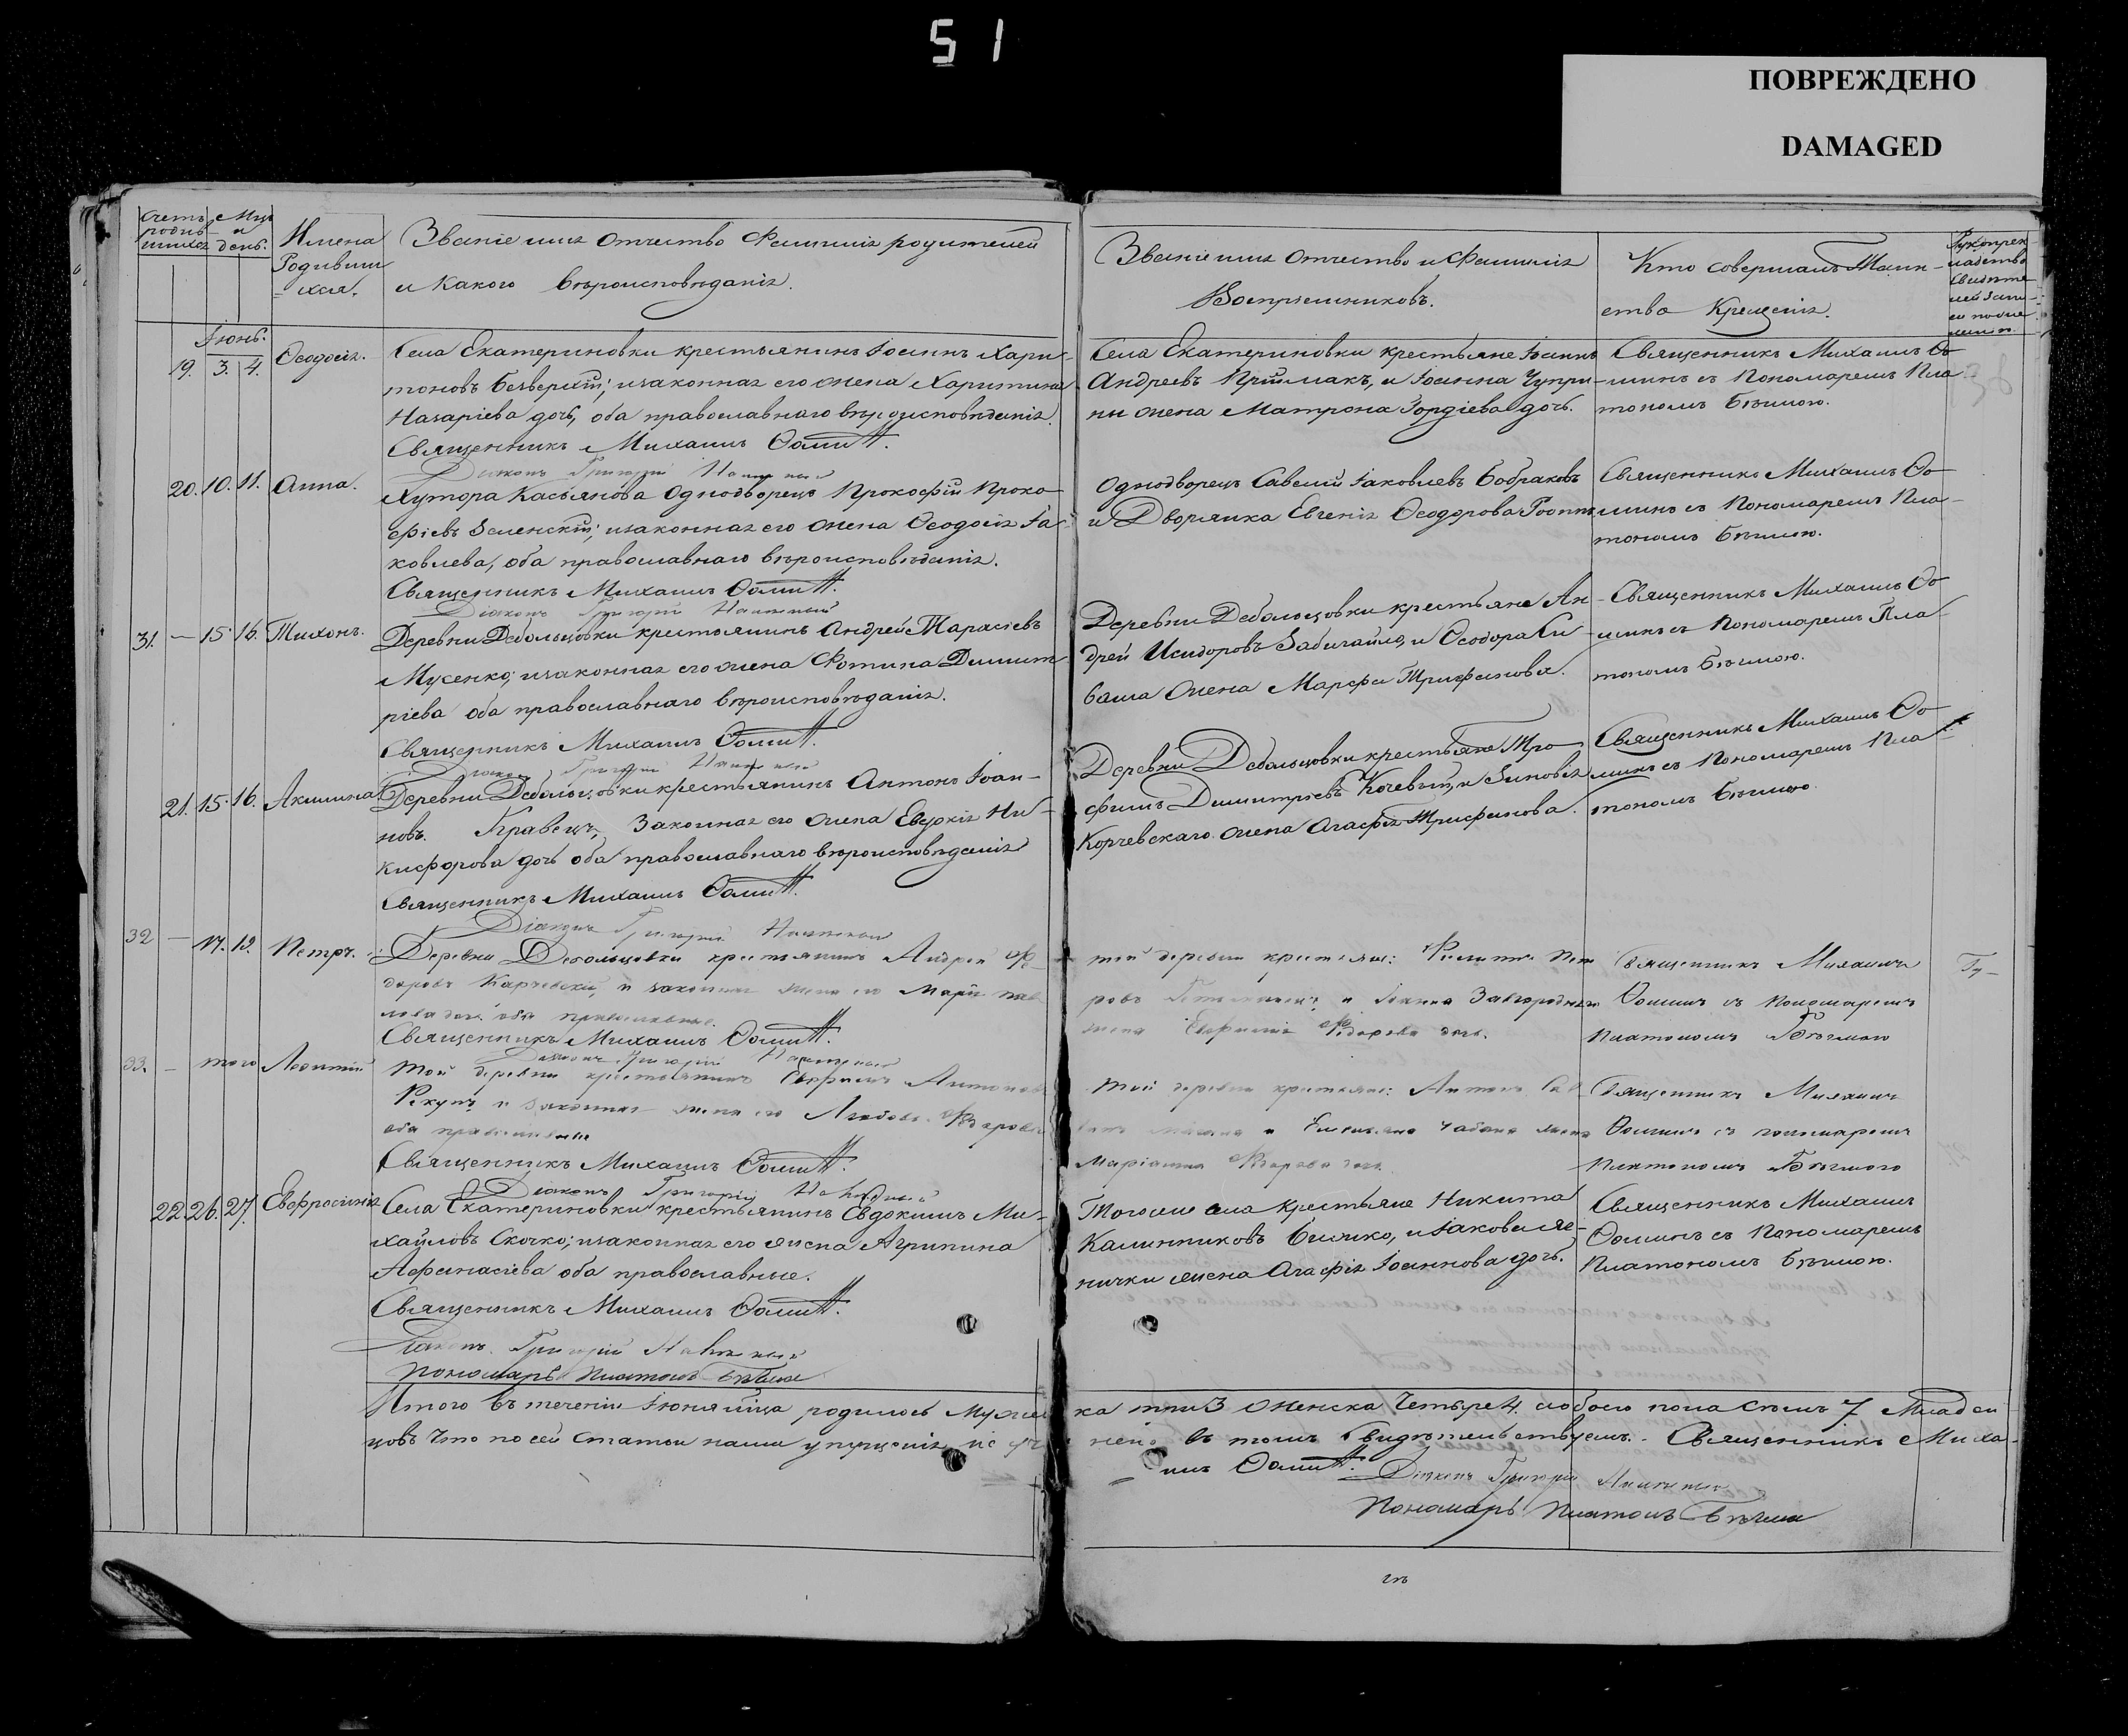 51
ПОВРЕЖДЕНО
DAMAGED
Счетъ родившихся
Мцъ и день.
Имена Родивших=ихся.
Званіе имя Отчество Фамилія родителей
и Какого вѣроисповѣданія.
Званіе имя Отчество и Фамилія
Воспріемниковъ.
Кто совершалъ Таин-
ство Крещенія.
Іюнь.
19. 3. 4. Ѳеодосія.
Села Екатериновки крестьянинъ Іоаннъ Хари-
тоновъ Безверхій; и законная его жена Харитина
Назаріева дочь, оба православнаго вѣроисповѣданія.
Священникъ Михаилъ Ѳоминъ.
Діаконъ Григорій
Села Екатериновки крестьяне Іоаннъ
Андреевъ Пріймакъ, и Іоанна Чупри-
ны жена Матрона Гордіева дочь.
Священникъ Михаилъ Ѳо-
минъ съ Пономаремъ Пла-
тономъ Бѣлмою.
20. 10. 11. Анна.
Хутора Касьянова Однодворецъ Прокофій Проко-
фіевъ Зеленскій; и законная его жена Ѳеодосія Іа-
ковлева, оба православнаго вѣроисповѣданія.
Священникъ Михаилъ Ѳоминъ.
Діаконъ Григорій
Однодворецъ Савелій Іаковлевъ Бобраковъ
и Дворянка Евгенія Ѳеодорова
Священникъ Михаилъ Ѳо-
минъ съ Пономаремъ Пла-
тономъ Бѣлмою.
31. — 15 16. Тихонъ.
Деревни Дебольцовки крестьянинъ Андрей Тарасіевъ
Мусенко; и законная его жена Фотина Димит-
ріева оба православнаго вѣроисповѣданія.
Священникъ Михаилъ Ѳоминъ.
Діаконъ Григорій
Деревни Дебольцовки крестьяне Ан-
дрей Исидоровъ Забигайло, и Ѳеодора Си-
ваша жена Марфа Трифонова.
Священникъ Михаилъ Ѳо-
минъ съ Пономаремъ Пла-
тономъ Бѣлмою.
21. 15. 16. Акилина
Деревни Дебольцовки крестьянинъ Антонъ Іоан-
новъ Кравецъ, Законная его жена Евдокія Ни-
кифорова дочь оба православнаго вѣроисповѣданія
Священникъ Михаилъ Ѳоминъ.
Діаконъ Григорій
Деревни Дебольцовки крестьяне Тро-
фимъ Димитріевъ Кочевый, и Зиновія
Корчевскаго жена Агафія Трифонова.
Священникъ Михаилъ Ѳо-
минъ съ Пономаремъ Пла-
тономъ Бѣлмою.
32 — 17. 19. Петръ.
Деревни Дебольцовки крестьянинъ Андрей Фе-
доровъ Карчевскій, и законная жена его Марія Пав-
лова дочь оба православные.
Священникъ Михаилъ Ѳоминъ.
Діаконъ Григорій
той деревни крестьяне: Филиппъ Пет-
ровъ и Іоанна Завгородняго
жена Евфимія Федорова дочь.
Священникъ Михаилъ
Ѳоминъ съ Пономаремъ
Платономъ Бѣлмою
33. — того Леонтій
Той деревни крестьянинъ Евфимъ Антоновъ
Рекунъ, и законная жена его Любовь Федорова
оба православные
Священникъ Михаилъ Ѳоминъ.
Діаконъ Григорій
Той деревни крестьяне: Антонъ
и Емельяна Чабана жена
Маріанна Федорова дочь.
Священникъ Михаилъ
Ѳоминъ съ пономаремъ
Платономъ Бѣлмою
22. 26. 27. Евфросинія
Села Екатериновки крестьянинъ Евдокимъ Ми-
хайловъ Скочко; и законная его жена Агрипина
Афанасіева оба православные.
Священникъ Михаилъ Ѳоминъ.
Діаконъ Григорій
Пономарь Платонъ Бѣлма
Того же села крестьяне Никита
Калинниковъ Билико, и Іакова Яе-
нички жена Агафія Іоаннова дочь.
Священникъ Михаилъ
Ѳоминъ съ Пономаремъ
Платономъ Бѣлмою.
Итого въ теченіи Іюня мца родилось Мужес-ка три 3 Женска Четыре 4. обоего пола Семь 7 Младен-
цовъ Что по сей статьи нами упущенія не учи-нено въ томъ Свидѣтельствуемъ. Священникъ Миха-
илъ Ѳоминъ. Діаконъ Григорій
Пономарь Платонъ Бѣлма